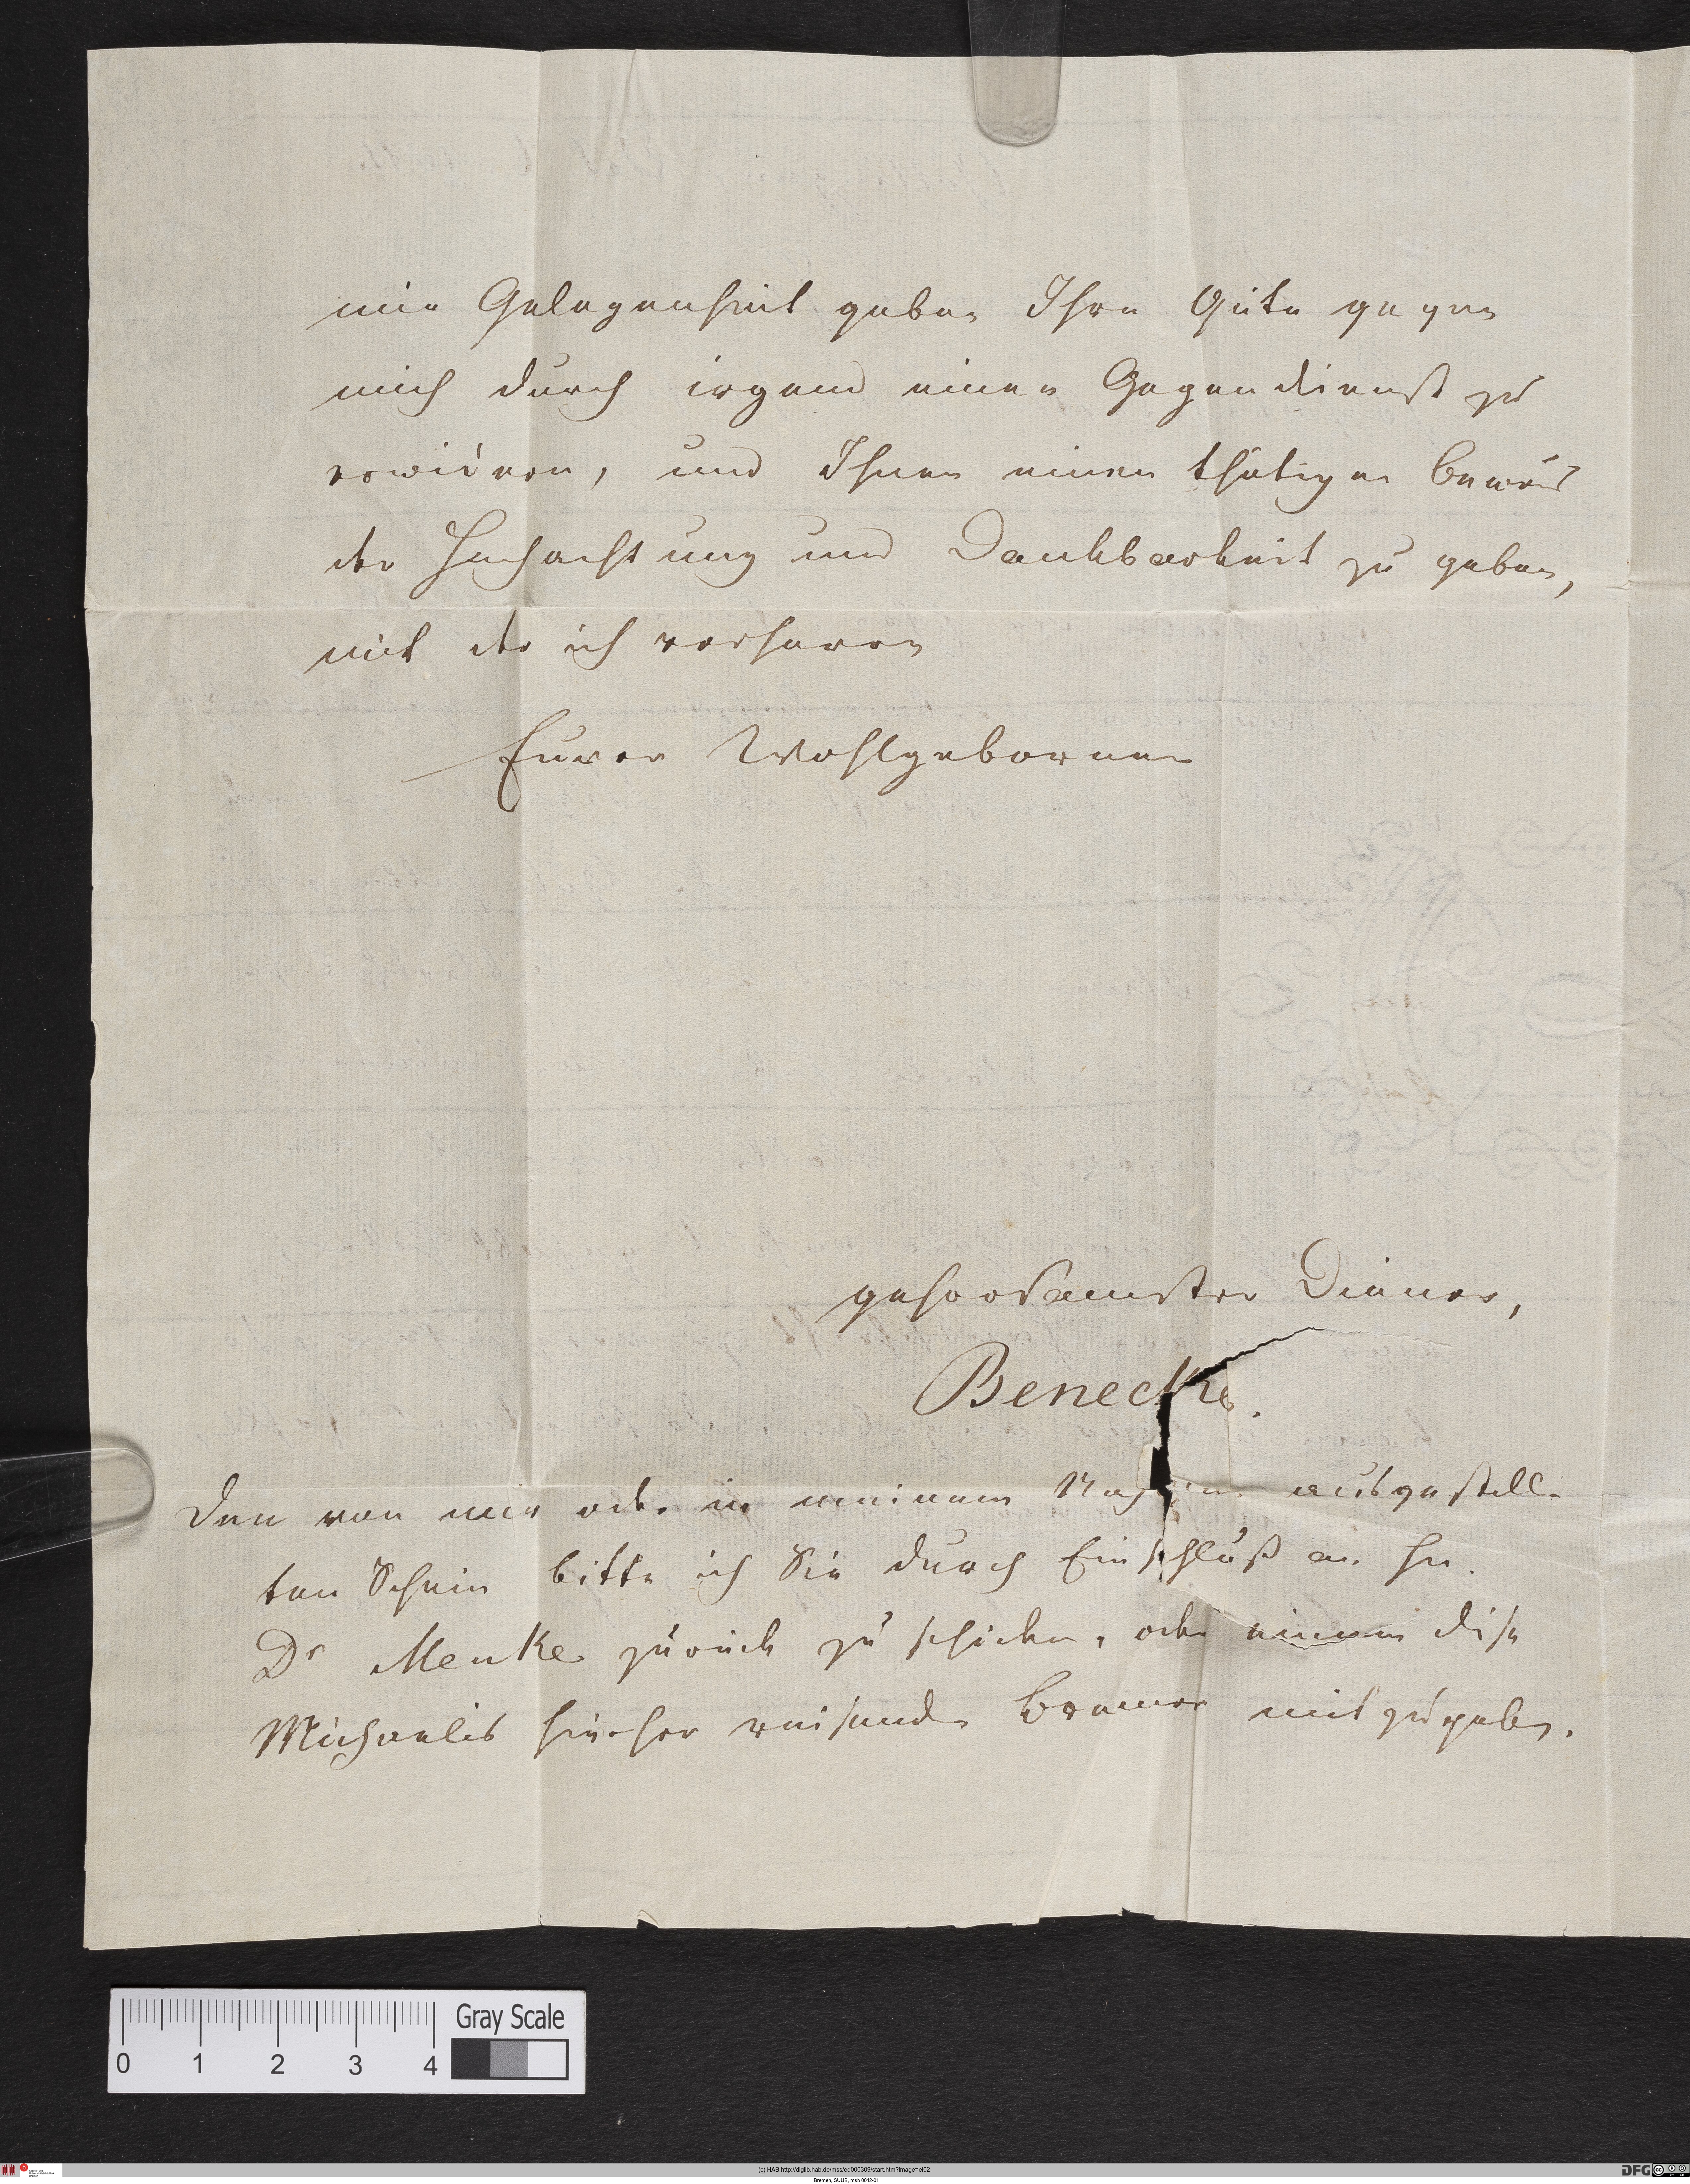 mir Gelegenheit geben Ihre Güte gegen
mich durch irgend einen Gegendienst zu
erwidern, und Ihnen einen thätigen Beweis
der Hochachtung und Dankbarkeit zu geben,
mit der ich verharre
Eurer Wohlgebornen
gehorsamster Diener,
Benecke.
Den von mir oder in meinem Nahmen ausgestell-
ten Schein bitte ich Sie durch Einschluß an Hn.
Dr Menke zurück zu schicken, oder einem diese
Michaelis hierher reisenden Bremer mitzugeben.
0 1 2 3 4
Gray Scale
(c) HAB http://diglib.hab.de/mss/ed000309/start.htm?image=el02
Bremen, SUUB, msb 0042-01
DFG